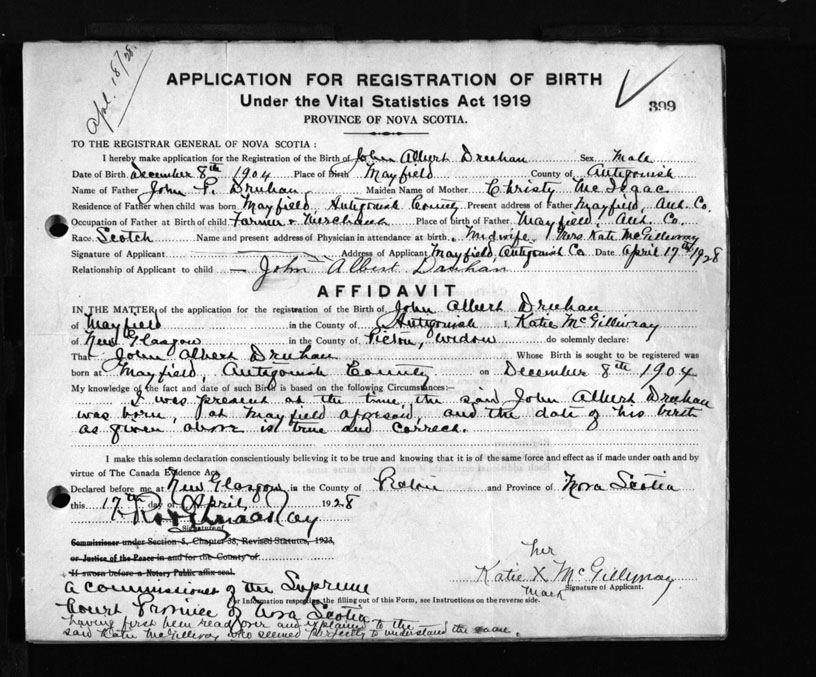 Apl. 18/28.
APPLICATION FOR REGISTRATION OF BIRTH
Under the Vital Statistics Act 1919
399
PROVINCE OF NOVA SCOTIA.
TO THE REGISTRAR GENERAL OF NOVA SCOTIA:
I hereby make application for the Registration of the Birth of John Albert Druhan Sex Male
Date of Birth December 8th 1904 Place of Birth Mayfield County of Antigonish
Name of Father John P. Druhan Maiden Name of Mother Christy McIsaac
Residence of Father when child was born Mayfield, Antigonish County Present address of Father Mayfield, Ant. Co.
Occupation of Father at Birth of child Farmer & Merchant Place of birth of Father Mayfield, Ant. Co.
Race Scotch Name and present address of Physician in attendance at birth. Midwife. Mrs. Kate McGillivray
Signature of Applicant Address of Applicant Mayfield, Antigonish Co Date April 17th 1928
Relationship of Applicant to child — John Albert Druhan
AFFIDAVIT
IN THE MATTER of the application for the registration of the Birth of John Albert Druhan
of Mayfield in the County of Antigonish I, Katie McGillivray
of New Glasgow in the County of Pictou, widow do solemnly declare:
That John Albert Druhan Whose Birth is sought to be registered was
born at Mayfield, Antigonish County on December 8th 1904
My knowledge of the fact and date of such Birth is based on the following Circumstances:—
I was present at the time, the said John Albert Druhan
was born, at Mayfield aforesaid, and the date of his birth
as given above is true and correct.
I make this solemn declaration conscientiously believing it to be true and knowing that it is of the same force and effect as if made under oath and by
virtue of The Canada Evidence Act.
Declared before me at New Glasgow in the County of Pictou and Province of Nova Scotia
this 17th day of April 1928
Signature of
Commissioner under Section 5, Chapter 38, Revised Statutes, 1923,
or Justice of the Peace in and for the County of
If sworn before a Notary Public affix seal.
her
Katie X McGillivray
mark Signature of Applicant.
A Commissioner of the Supreme
Court Province of Nova Scotia
For Information respecting the filling out of this Form, see Instructions on the reverse side.
having first been read over and explained to the
said Katie McGillivray who seemed perfectly to understand the same.